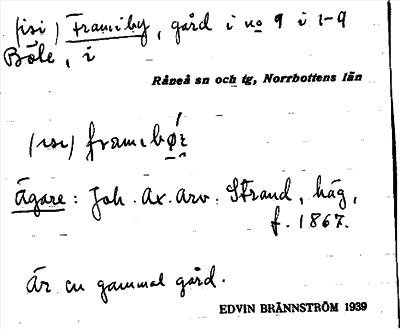 (isi) Framiby, gård i no 9 i 1-9
Böle, i
Råneå sn och tg, Norrbottens län
(isi) framıb
Ägare: Joh. Ax. Arv. Strand, häg,
f. 1867.
Är en gammal gård.
EDVIN BRÄNNSTRÖM 1939